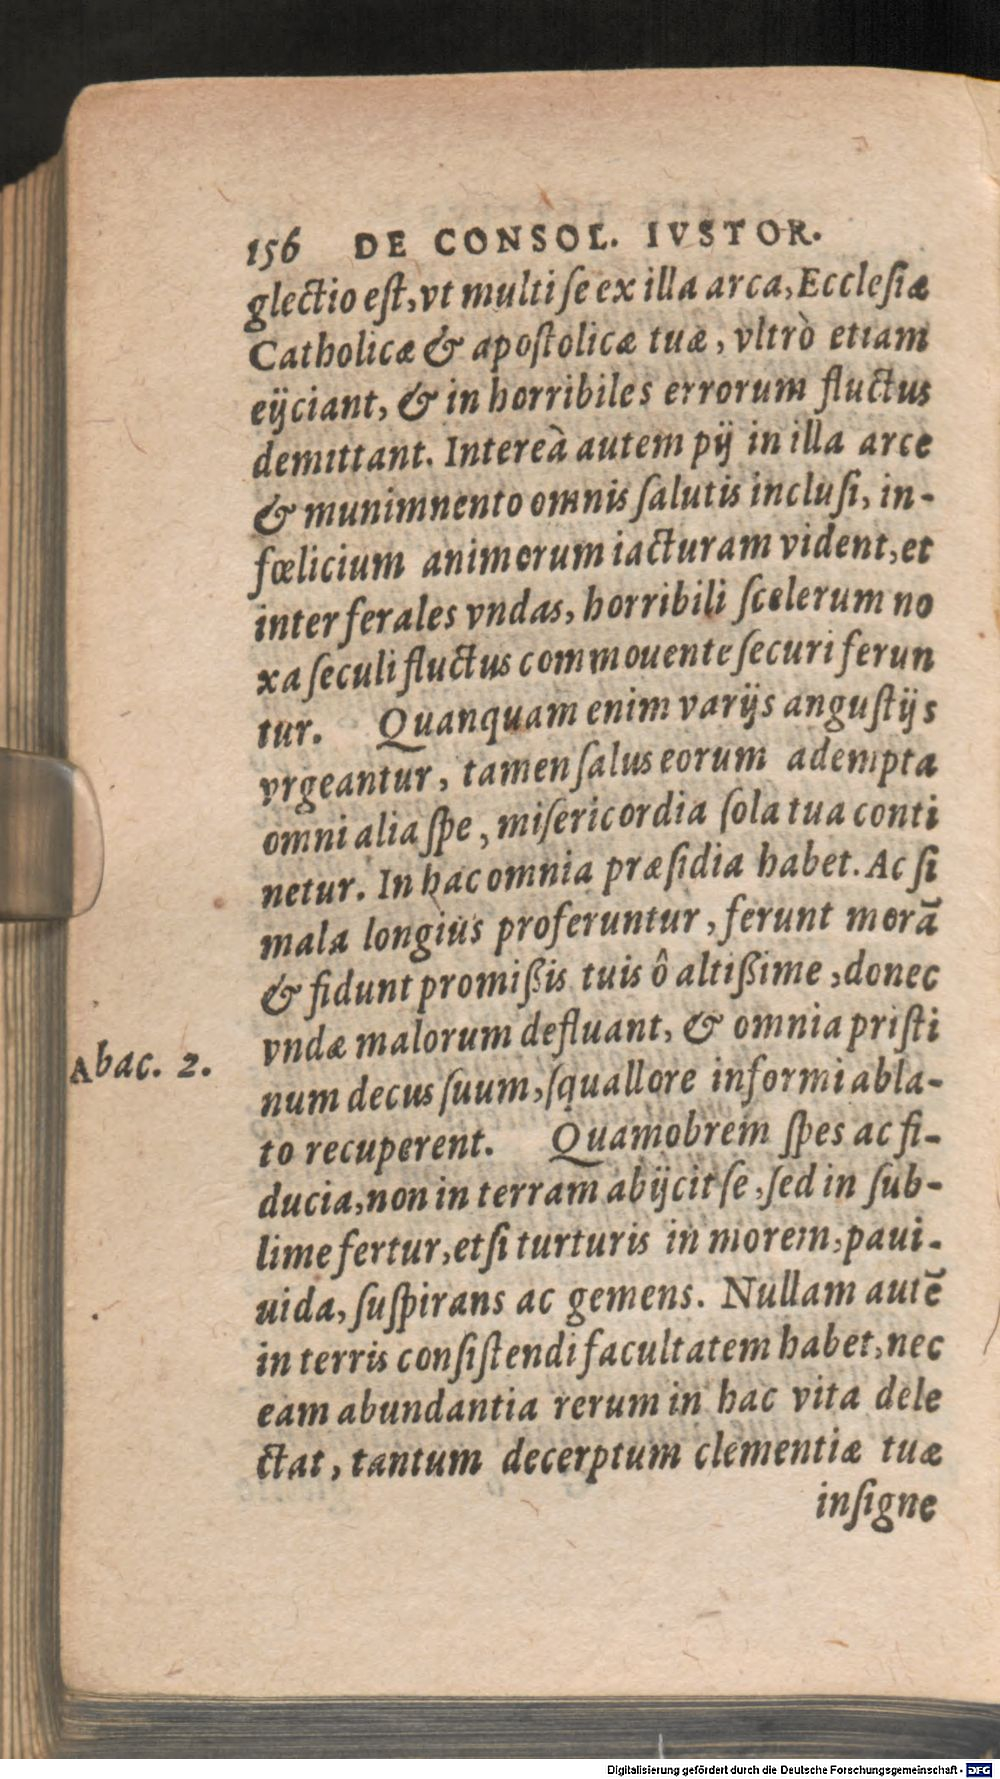 156 DE CONSOL. IVSTOR.
glectio eſt, vt multi ſe ex illa arca, Eccleſiæ
Catholicæ & apoſtolicæ tuæ, vltrò etiam
eijciant, & in horribiles errorum fluctus
demittant. Intereà autem pij in illa arce
& munimnento omnis ſalutis incluſi, in-
fœlicium animorum iacturam vident, et
inter ferales vndas, horribili ſcelerum no
xa ſeculi fluctus commouente ſecuri ferun
tur. Quanquam enim varijs anguſtijs
vrgeantur, tamen ſalus eorum adempta
omni alia ſpe, miſericordia ſola tua conti
netur. In hac omnia præſidia habet. Ac ſi
mala longiùs proferuntur, ferunt morā
& fidunt promißis tuis ô altißime, donec
Abac. 2.
vndæ malorum defluant, & omnia priſti
num decus ſuum, ſquallore informi abla-
to recuperent. Quamobrem ſpes ac fi-
ducia, non in terram abijcit ſe, ſed in ſub-
lime fertur, etſi turturis in morem, paui-
uida, ſuſpirans ac gemens. Nullam autē
in terris conſiſtendi facultatem habet, nec
eam abundantia rerum in hac vita dele
ctat, tantum decerptum clementiæ tuæ
inſigne
Digitalisierung gefördert durch die Deutsche Forschungsgemeinschaft - DFG